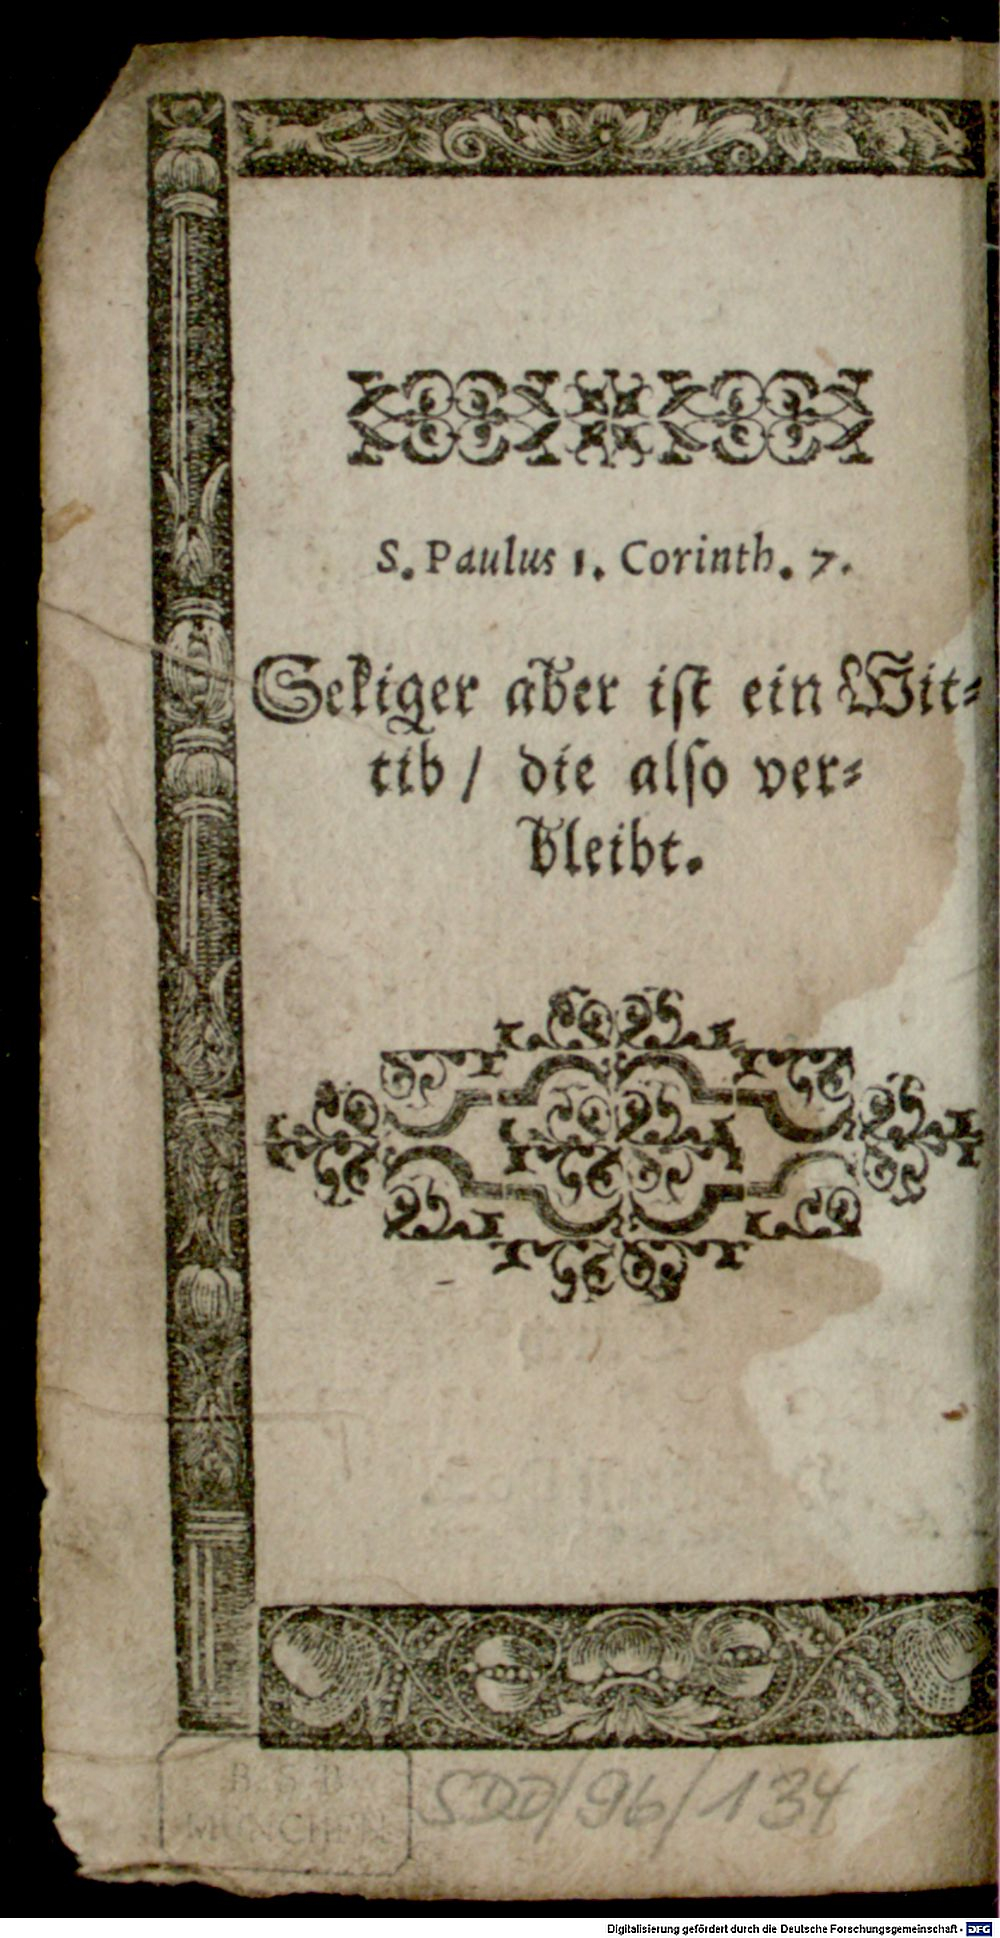 S. Paulus 1. Corinth. 7.
Sekiger aber iſt ein Wit⸗
tib / die alſo ver⸗
bleibt.
B. S. B
MÜNCHEN
SDD/96/134
Digitalisierung gefördert durch die Deutsche Forschungsgemeinschaft - DFG